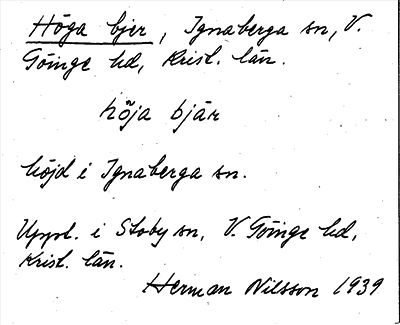 Höga bjer, Ignaberga sn, V.
Göinge hd, Krist. län.
hö̃ja bjär
höjd i Ignaberga sn.
Uppt. i Stoby sn, V. Göinge hd,
Krist. län.
Herman Nilsson 1939